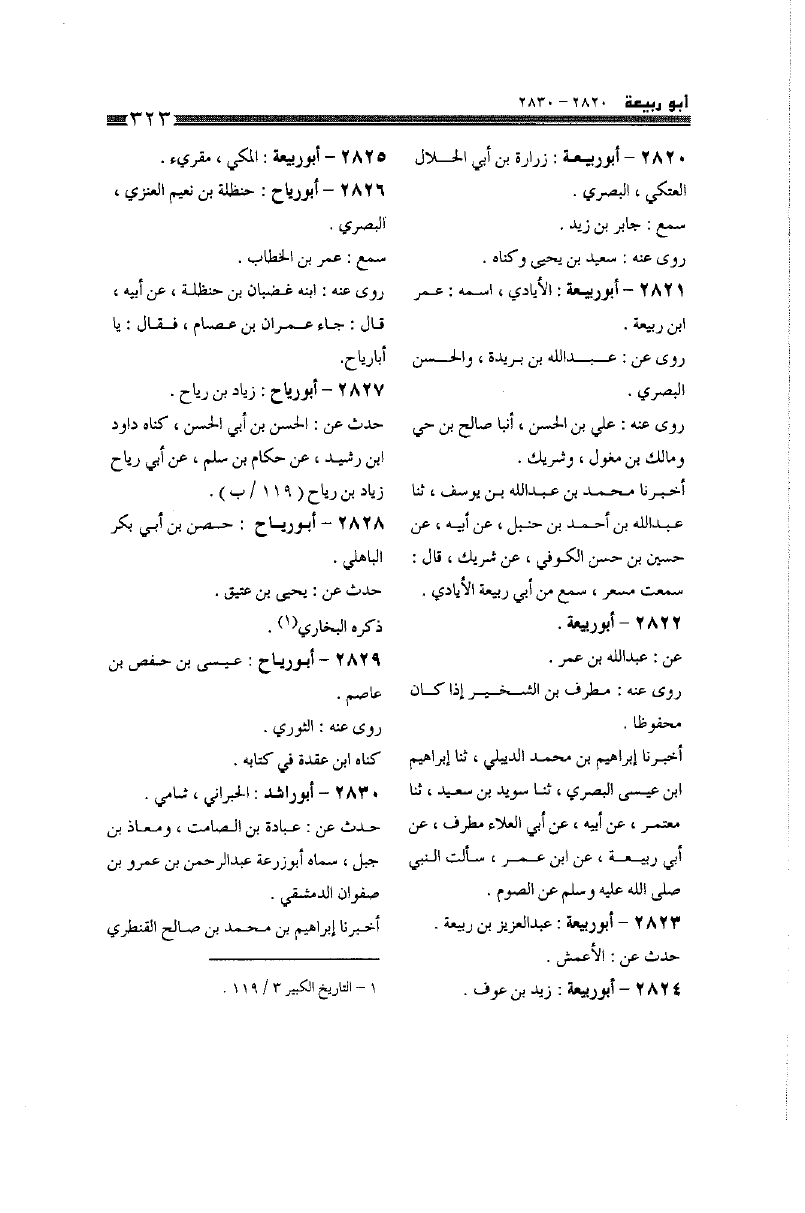 أبو ربيعة ٢٨٢٠ – ٢٨٣٠
٣٢٣
٢٨٢٠ – أبوربيعـة : زرارة بن أبي الحـلال
العتكي ، البصري .
سمع : جابر بن زيد .
روى عنه : سعيد بن يحيى وكناه .
٢٨٢١ – أبوربيعة : الأيادي ، اسمه : عمر
ابن ربيعة .
روى عن : عبـدالله بن بريدة ، والحـسن
البصري .
روى عنه : علي بن الحسن ، أنبا صالح بن حي
ومالك بن مغول ، وشريك .
أخبرنا محمد بن عبدالله بن يوسف ، ثنا
عبدالله بن أحمد بن حنبل ، عن أبيه ، عن
حسين بن حسن الكوفي ، عن شريك ، قال :
سمعت مسعر ، سمع من أبي ربيعة الأيادي .
٢٨٢٢ – أبوربيعة .
عن : عبدالله بن عمر .
روى عنه : مطرف بن الشخير إذا كان
محفوظا .
أخبرنا إبراهيم بن محمد الديبلي ، ثنا إبراهيم
ابن عيسى البصري ، ثنا سويد بن سعيد ، ثنا
معتمر ، عن أبيه ، عن أبي العلاء مطرف ، عن
أبي ربيعة ، عن ابن عمر ، سألت النبي
صلى الله عليه وسلم عن الصوم .
٢٨٢٣ – أبوربيعة : عبدالعزيز بن ربيعة .
حدث عن : الأعمش .
٢٨٢٤ – أبوربيعة : زيد بن عوف .
٢٨٢٥ – أبوربيعة : المكي ، مقريء .
٢٨٢٦ – أبورياح : حنظلة بن نعيم العنزي ،
البصري .
سمع : عمر بن الخطاب .
روى عنه : ابنه غضبان بن حنظلة ، عن أبيه ،
قال : جاء عمران بن عصام ، فقال : يا
أبارياح.
٢٨٢٧ – أبورياح : زياد بن رياح .
حدث عن : الحسن بن أبي الحسن ، كناه داود
ابن رشيد ، عن حكام بن سلم ، عن أبي رياح
زياد بن رياح ( ١١٩ / ب ) .
٢٨٢٨ – أبورياح : حصن بن أبي بكر
الباهلي .
حدث عن : يحيى بن عتيق .
ذكره البخاري(١) .
٢٨٢٩ – أبورياح : عيسى بن حفص بن
عاصم .
روى عنه : الثوري .
كناه ابن عقدة في كتابه .
٢٨٣٠ – أبوراشد : الحبراني ، شامي .
حدث عن : عبادة بن الصامت ، ومعاذ بن
جبل ، سماه أبوزرعة عبدالرحمن بن عمرو بن
صفوان الدمشقي .
أخبرنا إبراهيم بن محمد بن صالح القنطري
١ – التاريخ الكبير ٣ / ١١٩ .